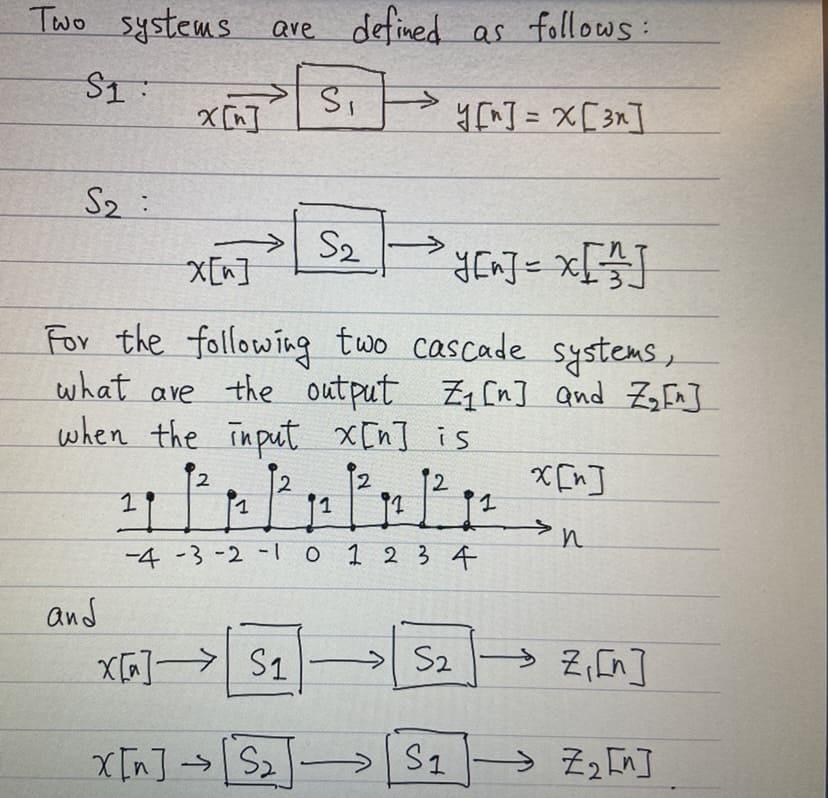 Two systems are defined as follows:
S1 :
x[n] S1 y[n] = x[3n]
S2 :
x[n] S2 y[n] = x[n/3]
For the following two cascade systems,
what are the output Z1[n] and Z2[n]
when the input x[n] is
1 2 1 2 1 2 1 2 1 x[n]
-4 -3 -2 -1 0 1 2 3 4 n
and
x[n] S1 S2 Z1[n]
x[n] S2 S1 Z2[n].